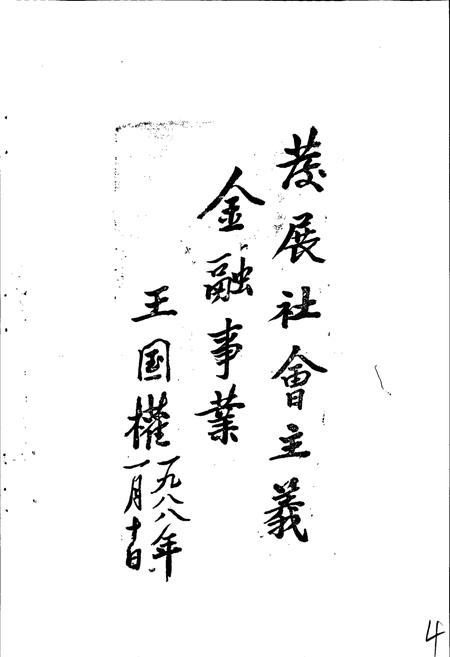 发展社會主義
金融事業
王国權
一九八八年
一月十日
4